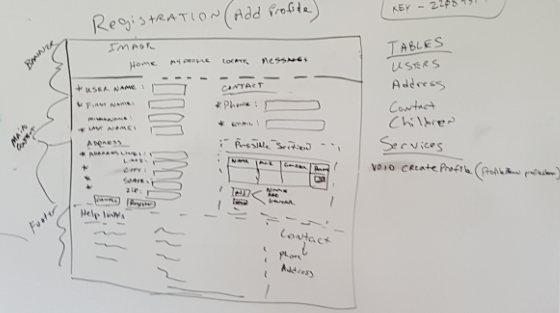 Registration (Add Profile)
KEY -
Banner
Image
Home My People Locate Messages
Main Content
* User Name:
* First Name:
* Last Name:
Address
* Address Line1:
Line2:
* City:
* State:
* Zip:
Cancel Register
Contact
* Phone:
* Email:
Possible Section
Name Age Gender
Add
Name
Age
Gender
Footer
Help Links
Contact
Phone
Address
Tables
Users
Address
Contact
Children
Services
void createProfile(